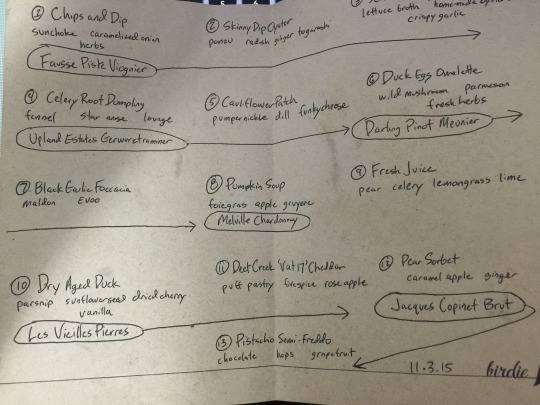 ① Chips and Dip
sunchoke caramelized onion
herbs
Fausse Piste Viognier
② Skinny Dip Oyster
ponzu radish ginger togarashi
lettuce broth
crispy garlic
④ Celery Root Dumpling
fennel star anise lovage
Upland Estates Gerwurztraminer
⑤ Cauliflower Patch
pumpernickle dill funky cheese
⑥ Duck Eggs Omelette
wild mushroom parmesan
fresh herbs
Darling Pinot Meunier
⑦ Black Garlic Foccacia
maldon EVOO
⑧ Pumpkin Soup
foie gras apple gruyere
Melville Chardonnay
⑨ Fresh Juice
pear celery lemongrass lime
⑩ Dry Aged Duck
parsnip sunflower seed dried cherry
vanilla
Les Vieilles Pierres
⑪ Deer Creek 'Vat 17' Cheddar
puff pastry fivespice rose apple
⑫ Pear Sorbet
caramel apple ginger
Jacques Copinet Brut
⑬ Pistachio Semi-Freddo
chocolate hops grapefruit
11.3.15
birdie